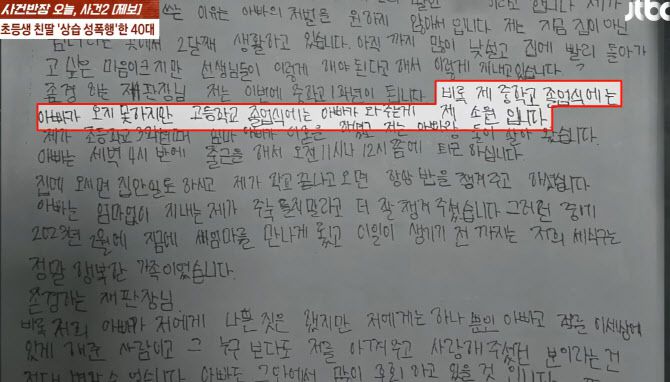 사건반장 오늘, 사건2 [제보]
초등생 친딸 '상습 성폭행'한 40대
jtbc
쓰는 이유는 아빠의 처벌을 원하지 않아서 입니다. 저는 지금 집이 아닌
곳에서 2달째 생활하고 있습니다. 아직 까지 많이 낯설고 집에 빨리 돌아가
고 싶은 마음이 크지만 선생님들이 이렇게 해야 된다고 해서 이렇게 지내고 있습니다.
존경 하는 재판장님 저는 이번에 중학교 1학년이 됩니다. 비록 제 중학교 졸업식에는
아빠가 오지 못하지만 고등학교 졸업식에는 아빠가 와 주는게 제 소원 입니다
제가 초등학교 3학년때 엄마 아빠가 이혼을 저는 아빠랑 둘이 살아 왔습니다.
아빠는 새벽 4시 반에 출근을 해서 오전 11시나 12시 쯤에 퇴근 하십니다.
집에 오시면 집안일도 하시고 제가 학교 끝나고 오면 항상 밥을 챙겨주고 하셨습니다
아빠는 엄마없이 지내는 제가 주눅 들지말라고 더 잘 챙겨 주셨습니다 그러던 중에
2023년 2월에 지금에 새엄마를 만나게 됬고 이일이 생기기 전 까지는 저희 세식구는
정말 행복한 가족이었습니다.
존경하는 재판장님.
비록 저희 아빠가 저에게 나쁜 짓은 했지만 저에게는 하나 뿐인 아빠고 저를 이세상에
있게 해준 사람이고 그 누구 보다도 저를 아껴주고 사랑해 주셨던 분이라는건
아빠도 그 안에서 많이 후회 하고 있을 것 입니다